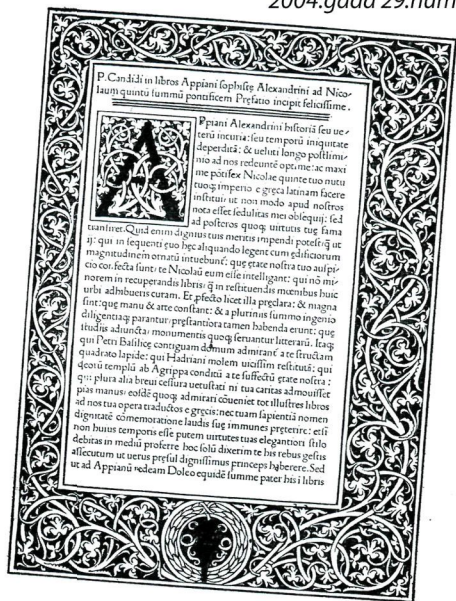 2004.gada 29.num
P. Candidi in libros Appiani sophistę Alexandrini ad Nico-
laum quintū summū pontificem Pręfatio incipit felicissime.
Appiani Alexandrini historiā seu ue-
terū incuria: seu temporū iniquitate
deperditā: & ueluti longo postlimi-
nio ad nos redeuntē optime: ac maxi
me pōtifex Nicolae quinte tuo nutu
tuoq; imperio e gręca latinam facere
institui: ut non modo apud nostros
nota esset sedulitas mei obsequij: sed
ad posteros quoq; uirtutis tuę fama
transiret. Quid enim dignius tuis meritis impendi potest: q̄ ut
ij: qui in sequenti ęuo hęc aliquando legent cum ędificiorum
magnitudinem ornatū intuebunt: quę ętate nostra tuo auspi-
cio cōfecta sunt: te Nicolaū eum esse intelligant: qui nō mi-
norem in recuperandis libris: q̄ in restituendis mœnibus huic
urbi adhibueris curam. Et pfecto licet illa pręclara: & magna
sint: quę manu & arte constant: & a plurimis summo ingenio
diligentiaq; parantur: pręstantiora tamen habenda erunt: quę
studijs adiuncta: monumentis quoq; seruantur litterarū. Itaq;
qui Petri Basilicę contiguam domum admirant a te structam
quadrato lapide: qui Hadriani molem uicissim restitutā: qui
deorū templū ab Agrippa conditū a te suffectū ętate nostra:
qui plura alia breui cessura uetustati ni tua caritas admouisset
pias manus: eosdē quoq; admirari cōueniet tot illustres libros
ad nos tua opera traductos e gręcis: nec tuam sapientiā nomen
dignitatē cōmemoratione laudis suę immunes pręterire: etsi
non huius temporis esse putem uirtutes tuas elegantiori stilo
debitas in mediū proferre hoc solū dixerim te his rebus gestis
assecutum ut uerus pręsul dignissimus princeps haberere. Sed
ut ad Appianū redeam Doleo equidē summe pater his i libris